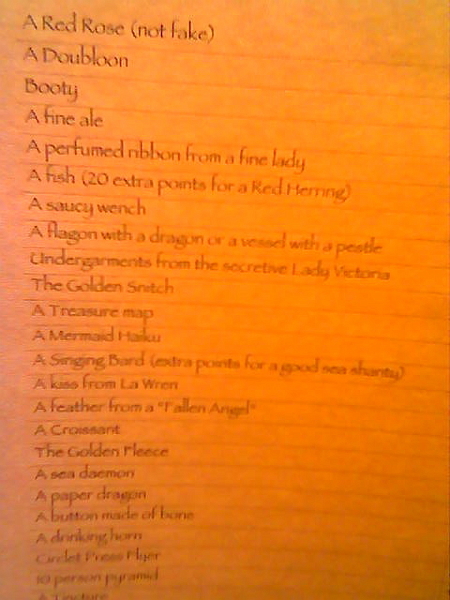 A Red Rose (not fake)
A Doubloon
Booty
A fine ale
A perfumed ribbon from a fine lady
A fish (20 extra points for a Red Herring)
A saucy wench
A flagon with a dragon or a vessel with a pestle
Undergarments from the secretive Lady Victoria
The Golden Snitch
A Treasure map
A Mermaid Haiku
A Singing Bard (extra points for a good sea shanty)
A kiss from La Wren
A feather from a "Fallen Angel"
A Croissant
The Golden Fleece
A sea daemon
A paper dragon
A button made of bone
A drinking horn
Circlet Press Flyer
10 person pyramid
A Tincture